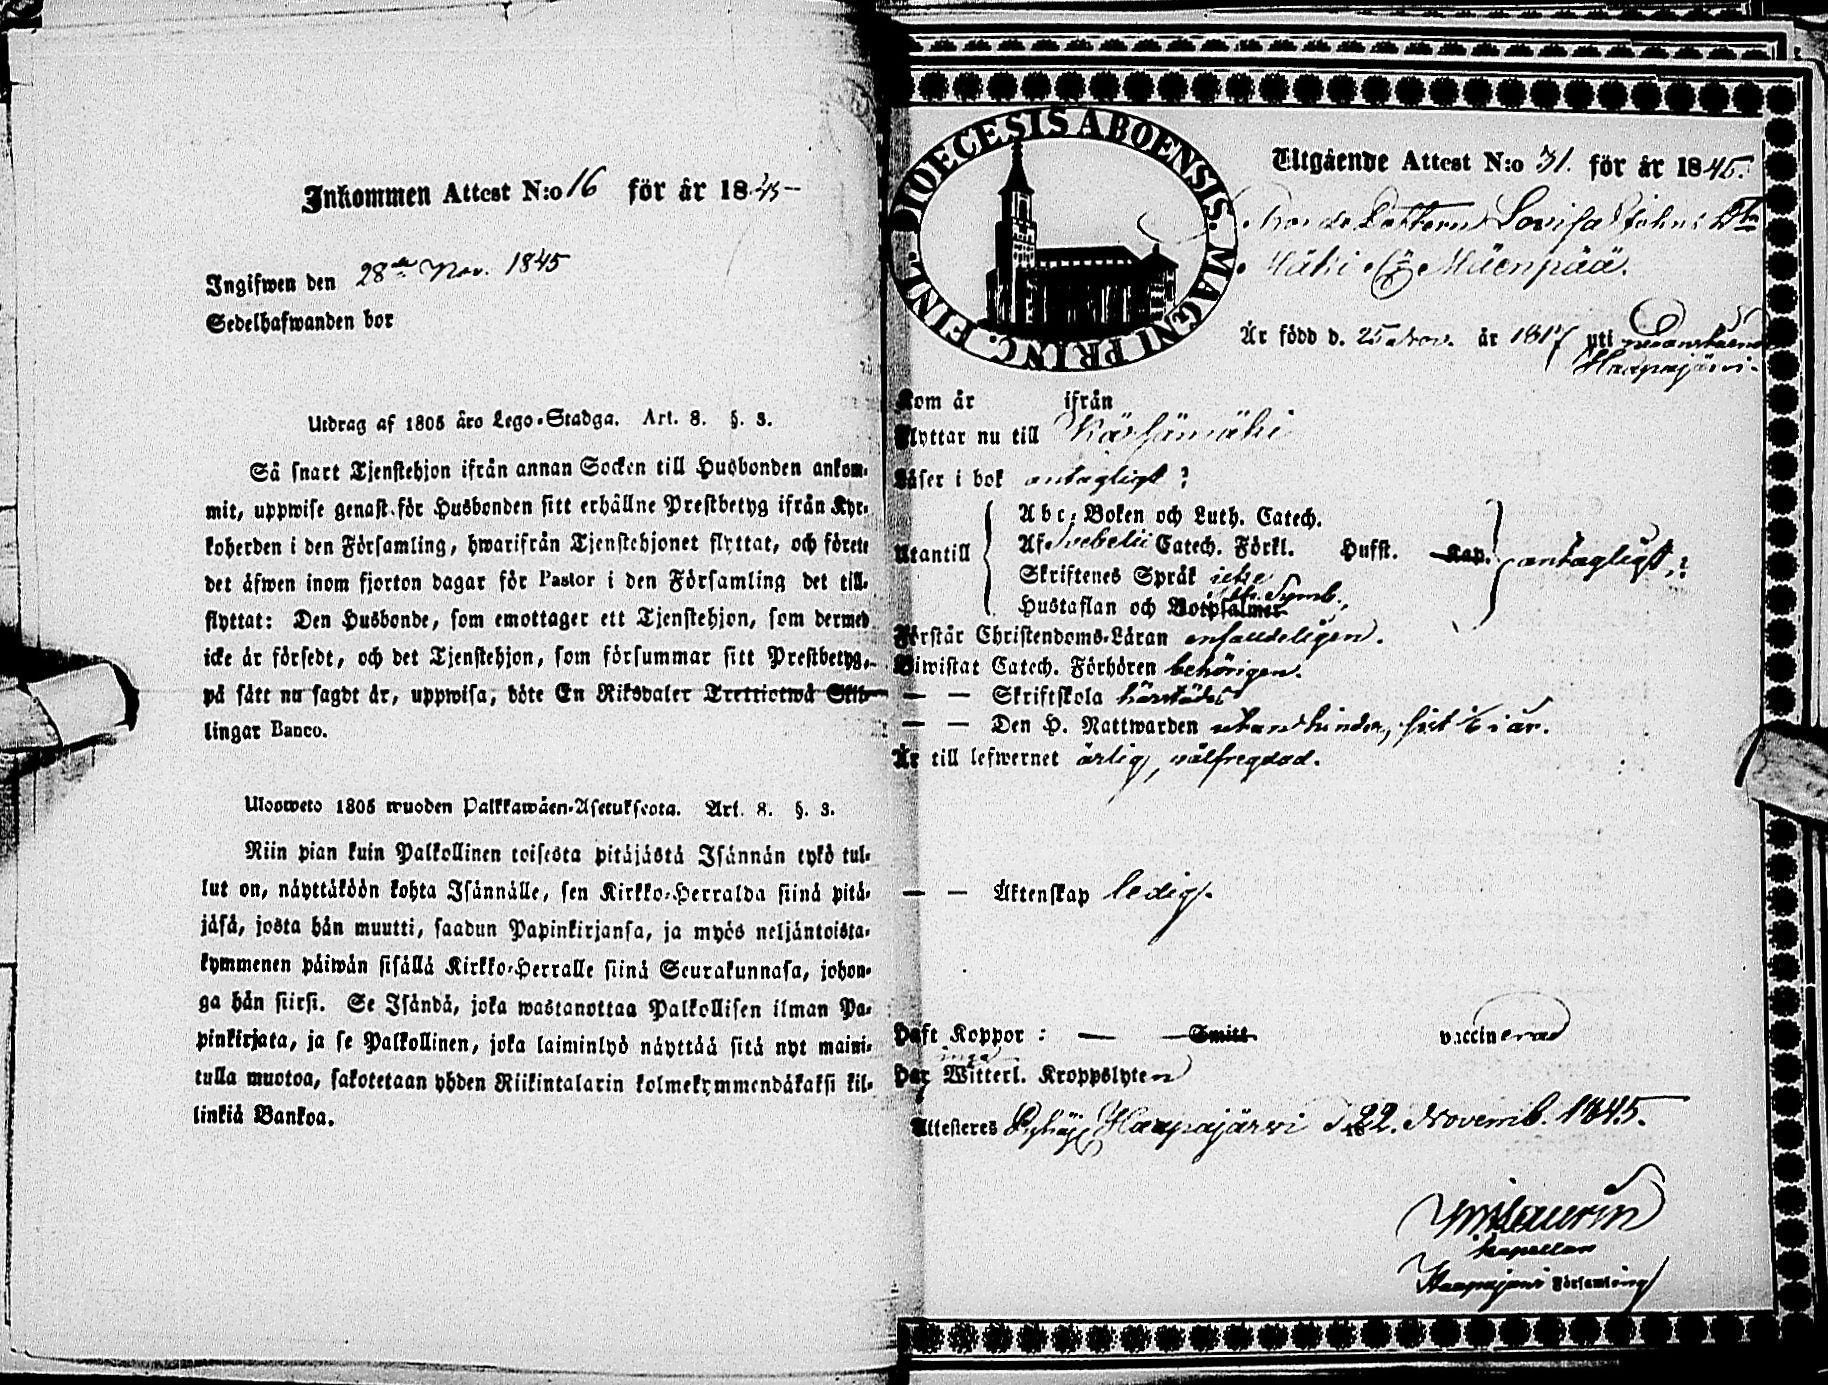 Inkommen Attest N:o 16 för år 1845
Ingifwen den 28de Nov. 1845
Sedelhafwanden bor
Utdrag af 1805 års Lego-Stadga. Art. 8. §. 3.
Så snart Tjenstehjon ifrån annan Socken till Husbonden ankom-
mit, uppwise genast för Husbonden sitt erhållne Prestbetyg ifrån Kyr-
koherden i den Församling, hwarifrån Tjenstehjonet flyttat, och förete
det äfwen inom fjorton dagar för Pastor i den Församling det till-
flyttat: Den Husbonde, som emottager ett Tjenstehjon, som dermed
icke är försedt, och det Tjenstehjon, som försummar sitt Prestbetyg,
på sätt nu sagdt är, uppwisa, böte En Riksdaler Trettiotwå Skil-
lingar Banco.
Ulosweto 1805 wuoden Palkkawäen-Asetuksesta. Art. 8. §. 3.
Niin pian kuin Palkollinen toisesta pitäjästä Isännän tykö tul-
lut on, näyttäköön kohta Isännälle, sen Kirkko-Herralda siinä pitä-
jäsä, josta hän muutti, saadun Papinkirjansa, ja myös neljäntoista-
kymmenen päiwän sisällä Kirkko-Herralle siinä Seurakunnasa, johon-
ga hän siirsi. Se Isändä, joka wastanottaa Palkollisen ilman Pa-
pinkirjata, ja se Palkollinen, joka laiminlyö näyttää sitä nyt maini-
tulla muotoa, sakotetaan yhden Riikintalarin kolmekymmendäkaksi kil-
linkiä Bankoa.
DIOECESIS ABOENSIS. MAGNI PRINC. FINL.
Utgående Attest N:o 31. för år 1845.
Bonde Dottern Lovisa Johns Dtr
Mäki Mäenpää.
Är född d. 25 Nov. år 1817 uti
Haapajärvi.
Kom år ifrån
Flyttar nu till Kärsämäki
Läser i bok antagligt
Utantill
Abc-Boken och Luth. Catech.
Af Svebelii Catech. Förkl. Husst. Kap.
Skriftenes Språk icke
Hustaflan och Botpsalmer Ath. Symb.
antagligt
Förstår Christendoms-Läran enfaldeligen.
Biwistat Catech. Förhören behörigen.
— — Skriftskola härstädes
— — Den H. Nattwarden utan hinder, sist i år.
Är till lefwernet ärlig, välfregdad.
— — Äktenskap ledig.
Haft Koppor: — Smitt vaccinerad
Har inga Witterl. Kroppslyten
Attesteres Haapajärvi d. 22. Novemb. 1845.
Kapellan
Haapajärvi Församling